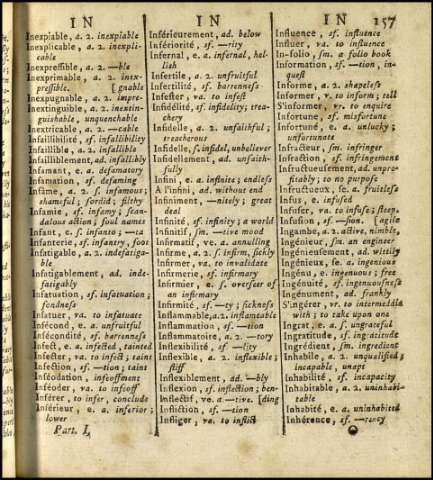 IN
IN
IN
157
Inexpiable, a. 2. inexpiable
Inexplicable, a. 2. inexpli-
cable
Inexpressible, a. 2. —ble
Inexprimable, a. 2. inex-
pressible. [gnable
Inexpugnable, a. 2. impre-
Inextinguible, a. 2. inextin-
guishable, unquenchable
Inextricable, a. 2. —cable
Infaillibilité, sf. infallibility
Infaillible, a. 2. infallible
Infailliblement, ad. infallibly
Infamant, e. a. defamatory
Infamation, sf. defaming
Infâme, a. 2. s. infamous;
shameful; sordid; filthy
Infamie, sf. infamy; scan-
dalous action; foul names
Infant, e. s. infanto; —ta
Infanterie, sf. infantry, foot
Infatigable, a. 2. indefatiga-
ble
Infatigablement, ad. inde-
fatigably
Infatuation, sf. infatuation;
fondness
Infatuer, va. to infatuate
Infécond, e. a. unfruitful
Infécondité, sf. barrenness
Infect, e. a. infected, tainted
Infecter, va. to infect; taint
Infection, sf. —tion; taint
Inféodation, sf. infeoffment
Inféoder, va. to infeoff
Inférer, to infer, conclude
Inférieur, e. a. inferior;
lower
Part. I.
Inférieurement, ad. below
Infériorité, sf. —rity
Infernal, e. a. infernal, hel-
lish
Infertile, a. 2. unfruitful
Infertilité, sf. barrenness
Infester, va. to infest
Infidélité, sf. infidelity; trea-
chery
Infidelle, a. 2. unfaithful;
treacherous
Infidelle, s. infidel, unbeliever
Infidellement, ad. unfaith-
fully
Infini, e. a. infinite; endless
A l'infini, ad. without end
Infiniment, —nitely; great
deal
Infinité, sf. infinity; a world
Infinitif, sm. —tive mood
Infirmatif, ve. a. annulling
Infirme, a. 2. s. infirm, sickly
Infirmer, va. to invalidate
Infirmerie, sf. infirmary
Infirmier, e. s. overseer of
an infirmary
Infirmité, sf. —ty; sickness
Inflammable, a. 2. inflamable
Inflammation, sf. —tion
Inflammatoire, a. 2. —tory
Inflexibilité, sf. —lity
Inflexible, a. 2. inflexible;
stiff
Inflexiblement, ad. —bly
Inflexion, sf. inflection; ben-
Inflectif, ve. a. —tive. [ding
Infliction, sf. —tion
Infliger, va. to inflict
Influence, sf. influence
Influer, va. to influence
In-folio, sm. a folio book
Information, sf. —tion, in-
quest
Informe, a. 2. shapeless
Informer, v. to inform; tell
S'informer, vr. to enquire
Infortune, sf. misfortune
Infortuné, e. a. unlucky;
unfortunate
Infracteur, sm. infringer
Infraction, sf. infringement
Infructueusement, ad. unpro-
fitably; to no purpose
Infructueux, se. a. fruitless
Infus, e. infused
Infuser, va. to infuse; steep
Infusion, sf. —sion. [agile
Ingambe, a. 2. active, nimble,
Ingénieur, sm. an engineer
Ingénieusement, ad. wittily
Ingénieux, se. a. ingenious
Ingénu, e. ingenuous; free
Ingénuité, sf. ingenuousness
Ingénument, ad. frankly
S'ingérer, vr. to intermeddle
with; to take upon one
Ingrat, e. a. s. ungrateful
Ingratitude, sf. ingratitude
Ingrédient, sm. ingredient
Inhabile, a. 2. unqualified;
incapable, unapt
Inhabilité, sf. incapacity
Inhabitable, a. 2. uninhabi-
table
Inhabité, e. a. uninhabited
Inhérence, sf. —rency